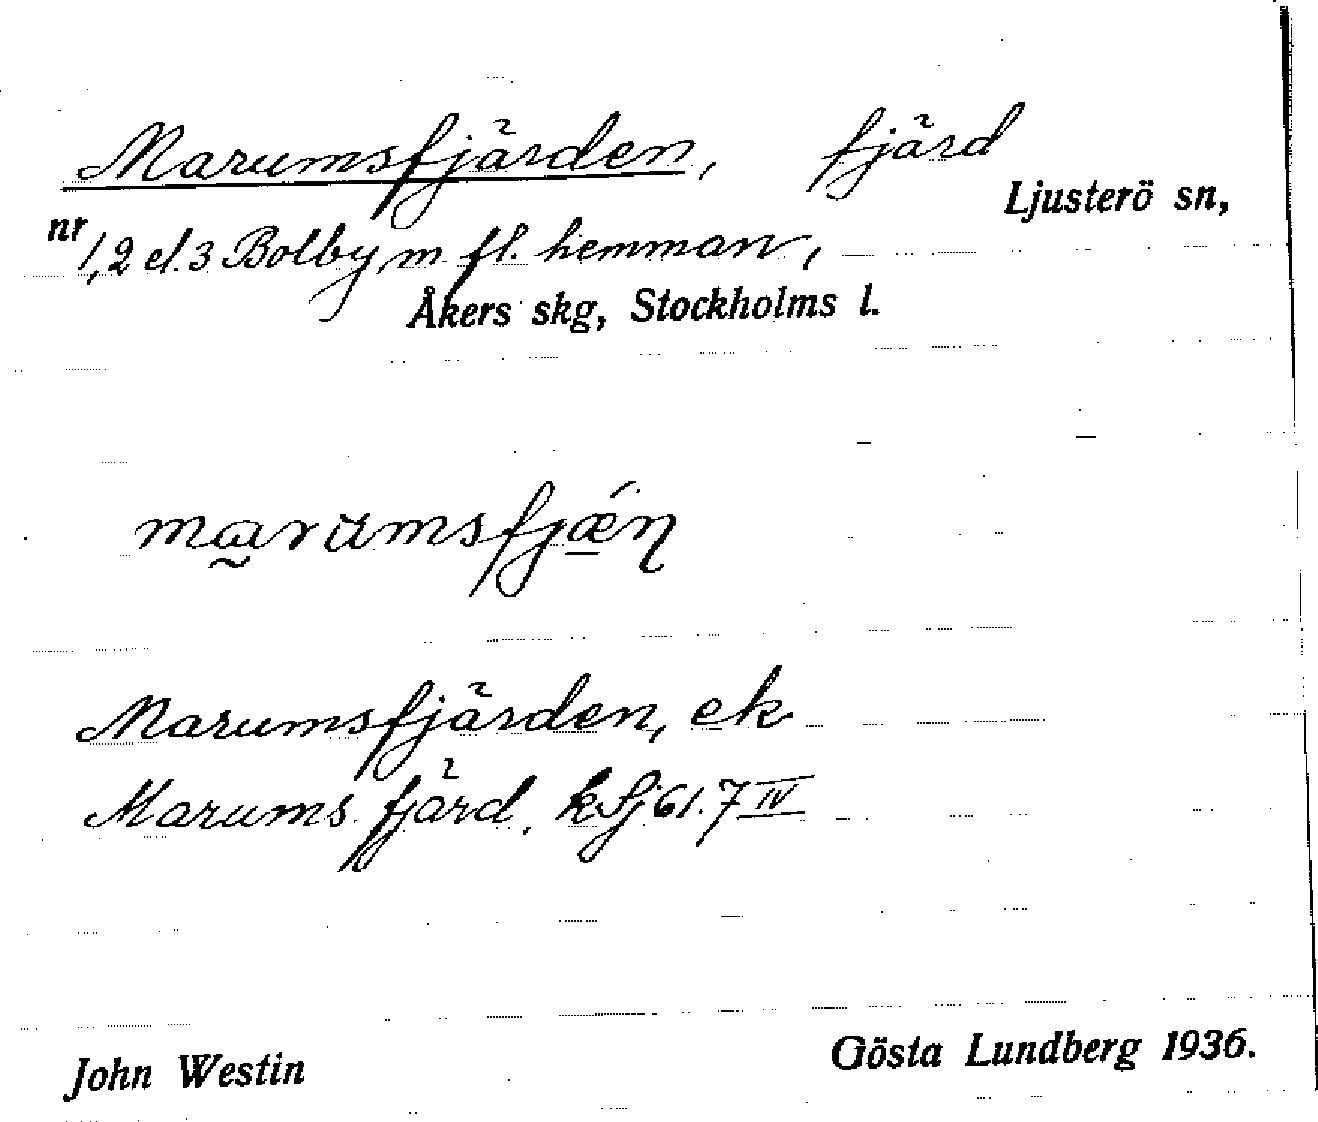 Marumsfjärden, fjärd
Ljusterö sn,
nr 1, 2 el. 3 Bolby, m fl. hemman,
Åkers skg, Stockholms l.
marumsfjǽɳ
Marumsfjärden, ek
Marums fjärd. k Lj 61. 7 IV
John Westin
Gösta Lundberg 1936.